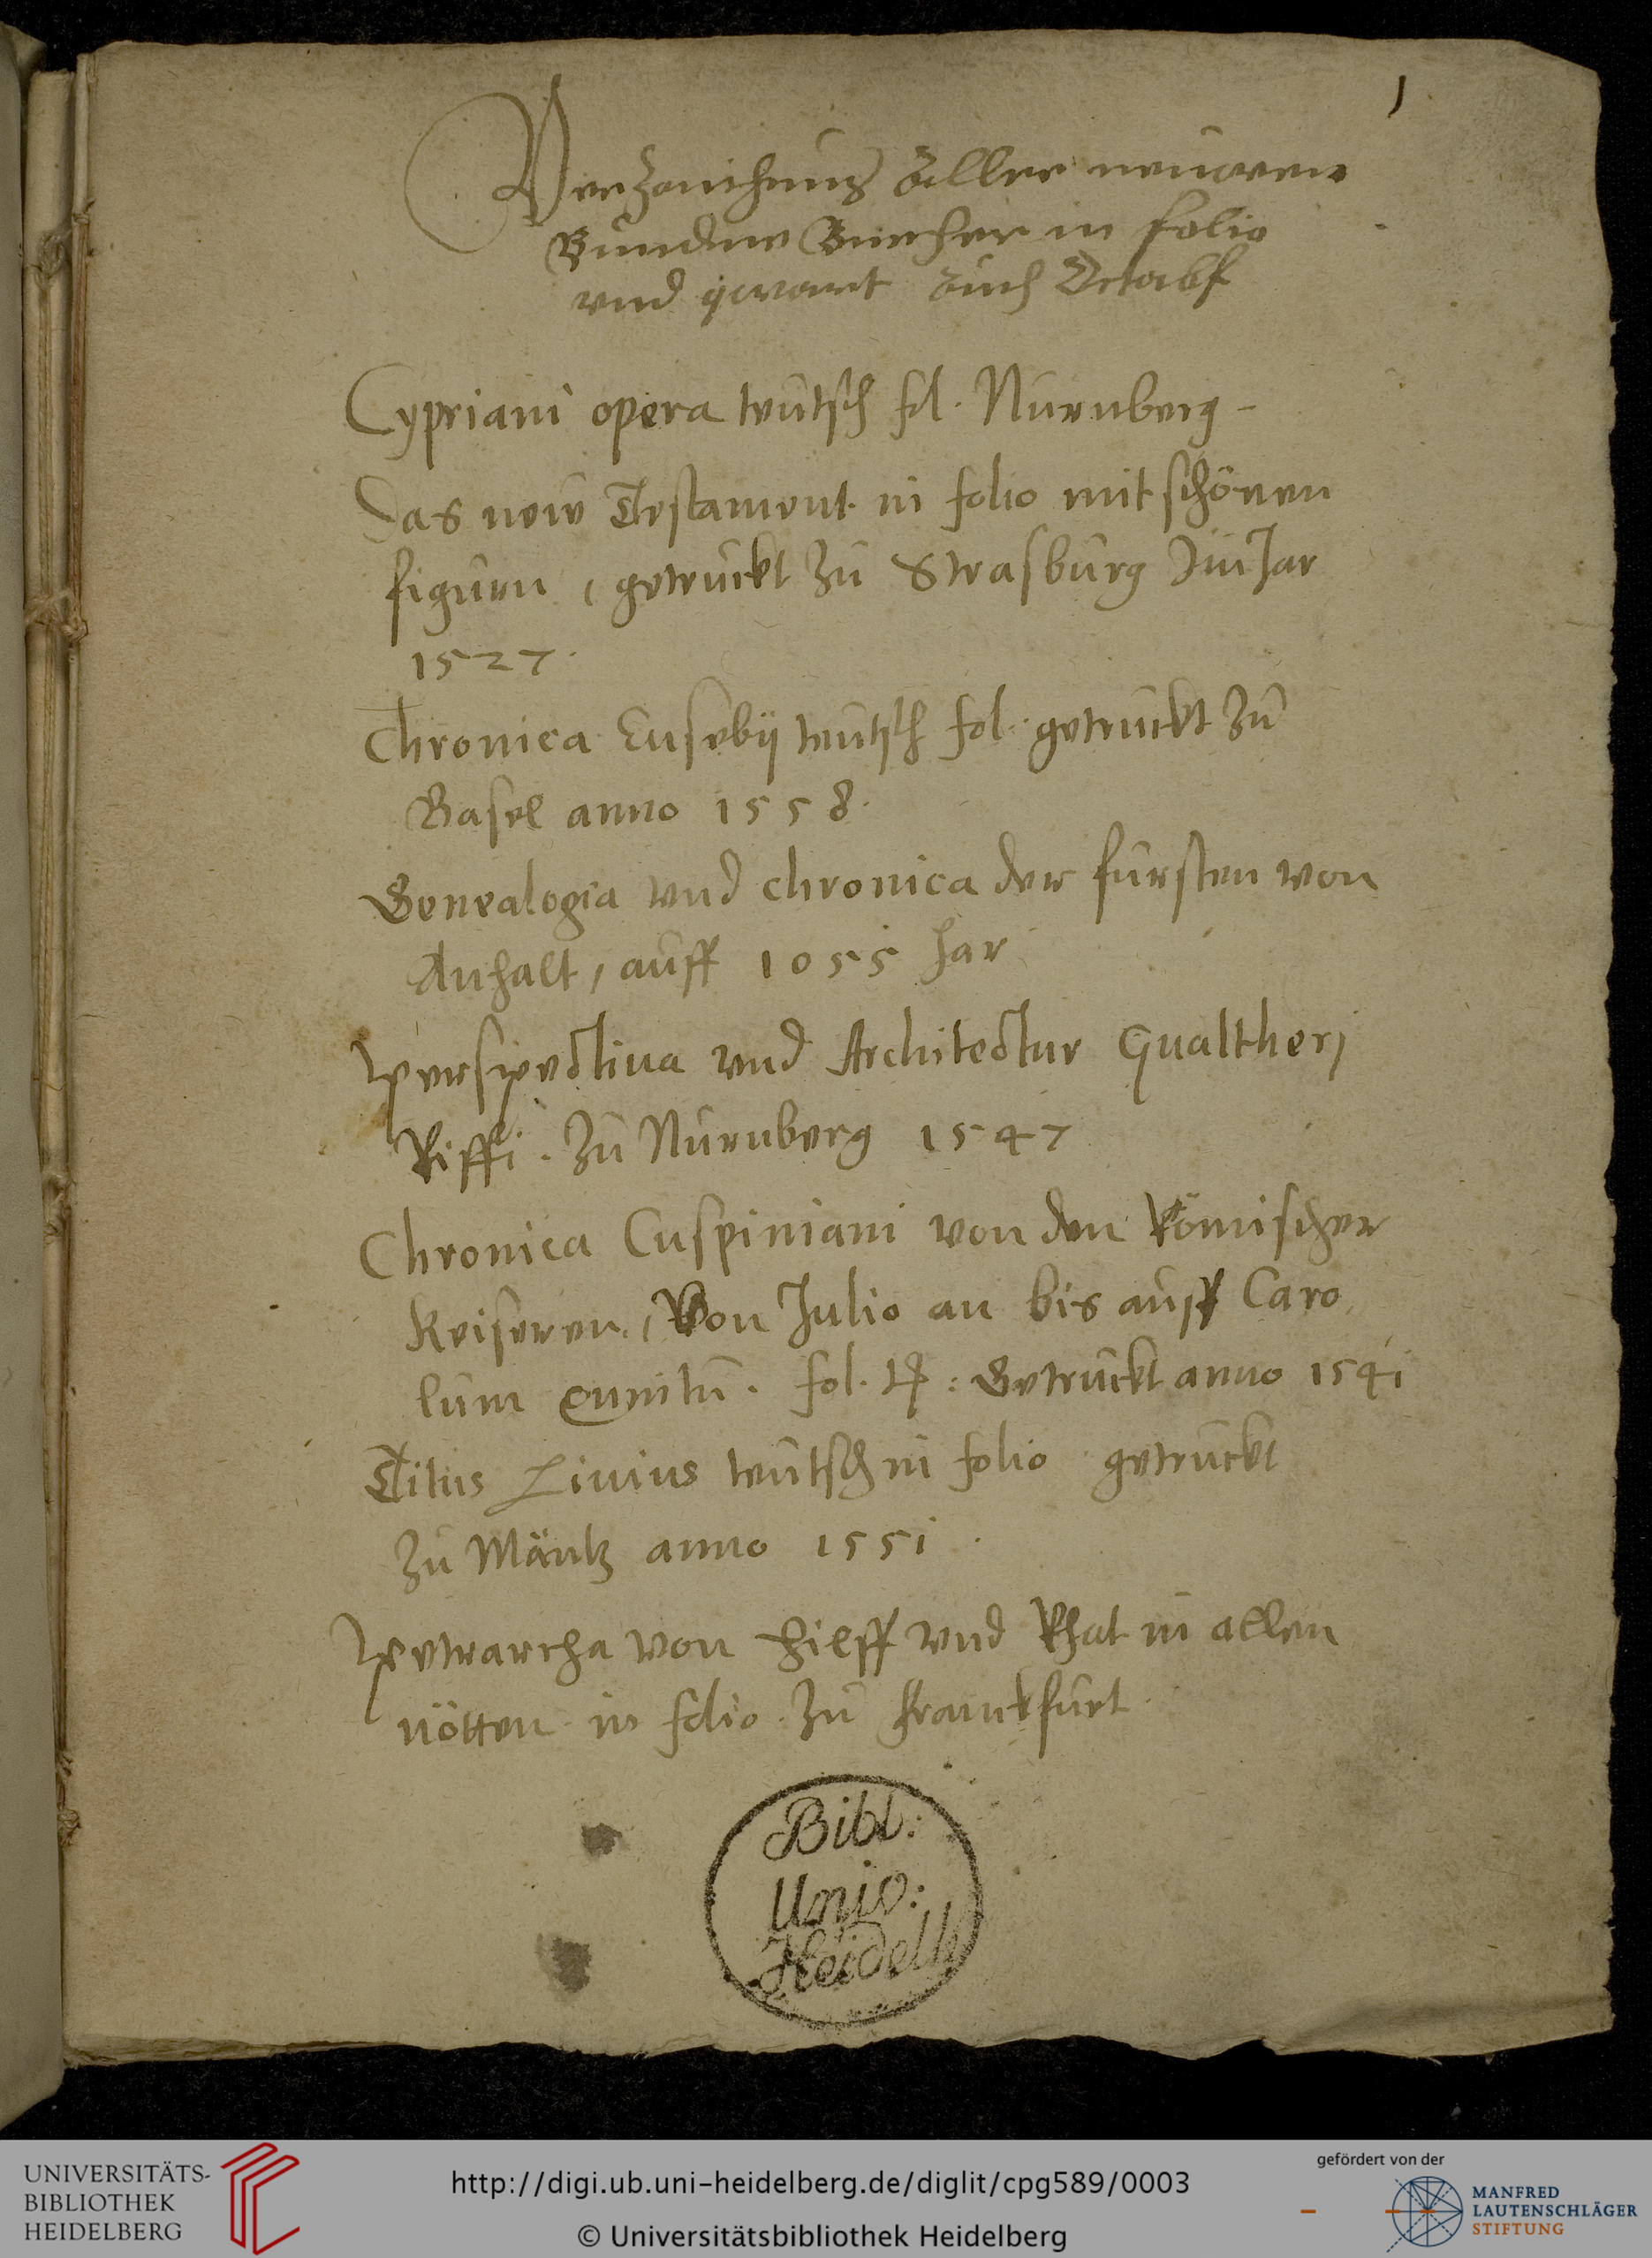 1
Verzaichnus aller neuwen
Bundne Buecher in folio
vnd quart auch Octabf
Cypriani opera teutsch fol. Nurnberg -
Das new Testament in folio mit schönen
figuren, getruckt zu Strasburg Im Jar
1527.
Chronica Eusebij teutsch fol. getruckt zu
Basel anno 1558.
Genealogia vnd chronica der fursten von
Anhalt, auff 1055 Jar
Perspectiua vnd Architectur Gualtherj
Riffi. zu Nurnberg 1547
Chronica Cuspiniani von den Römischer
Keiseren, Von Julio an bis auff Caro
lum quintu. fol. Getruckt anno 1541
Titus Liuius teutsch in folio getruckt
zu Mäntz anno 1551.
Petrarcha von hilff vnd Rhat in allen
nötten in folio. zu franckfurt.
Bibl:
Univ:
Heidelb
UNIVERSITÄTS-
BIBLIOTHEK
HEIDELBERG
http://digi.ub.uni-heidelberg.de/diglit/cpg589/0003
© Universitätsbibliothek Heidelberg
gefördert von der
MANFRED
LAUTENSCHLÄGER
STIFTUNG